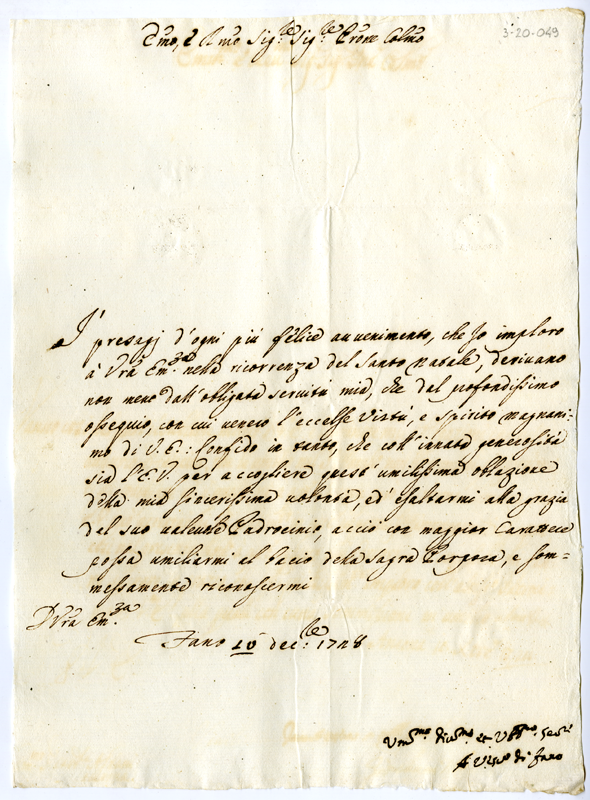 3-20-049
Emo, e Rmo Sig.re Sig.re Prone Colmo
I presagj d'ogni più felice avvenimento, che Io imploro
à Vrã Em.za nella ricorrenza del Santo Natale, derivano
non meno dall'obligata servitù mia, che dal profondissimo
ossequio, con cui venero l'eccelse Virtù, e Spirito magnani-
mo di V.E.: Confido in tanto, che coll'innata generosità
sia l'E.V. per accogliere quest'umilissima oblazione
della mia sincerissima volontà, ed esaltarmi alla grazia
del suo valevole Padrocinio, acciò con maggior Carattere
possa umiliarmi al bacio della Sagra Porpora, e som=
messamente riconoscermi
D Vrã Em.za
Fano dec.re 1728
Um.mo Div.mo et Obb.mo
Vesc.o di Fano